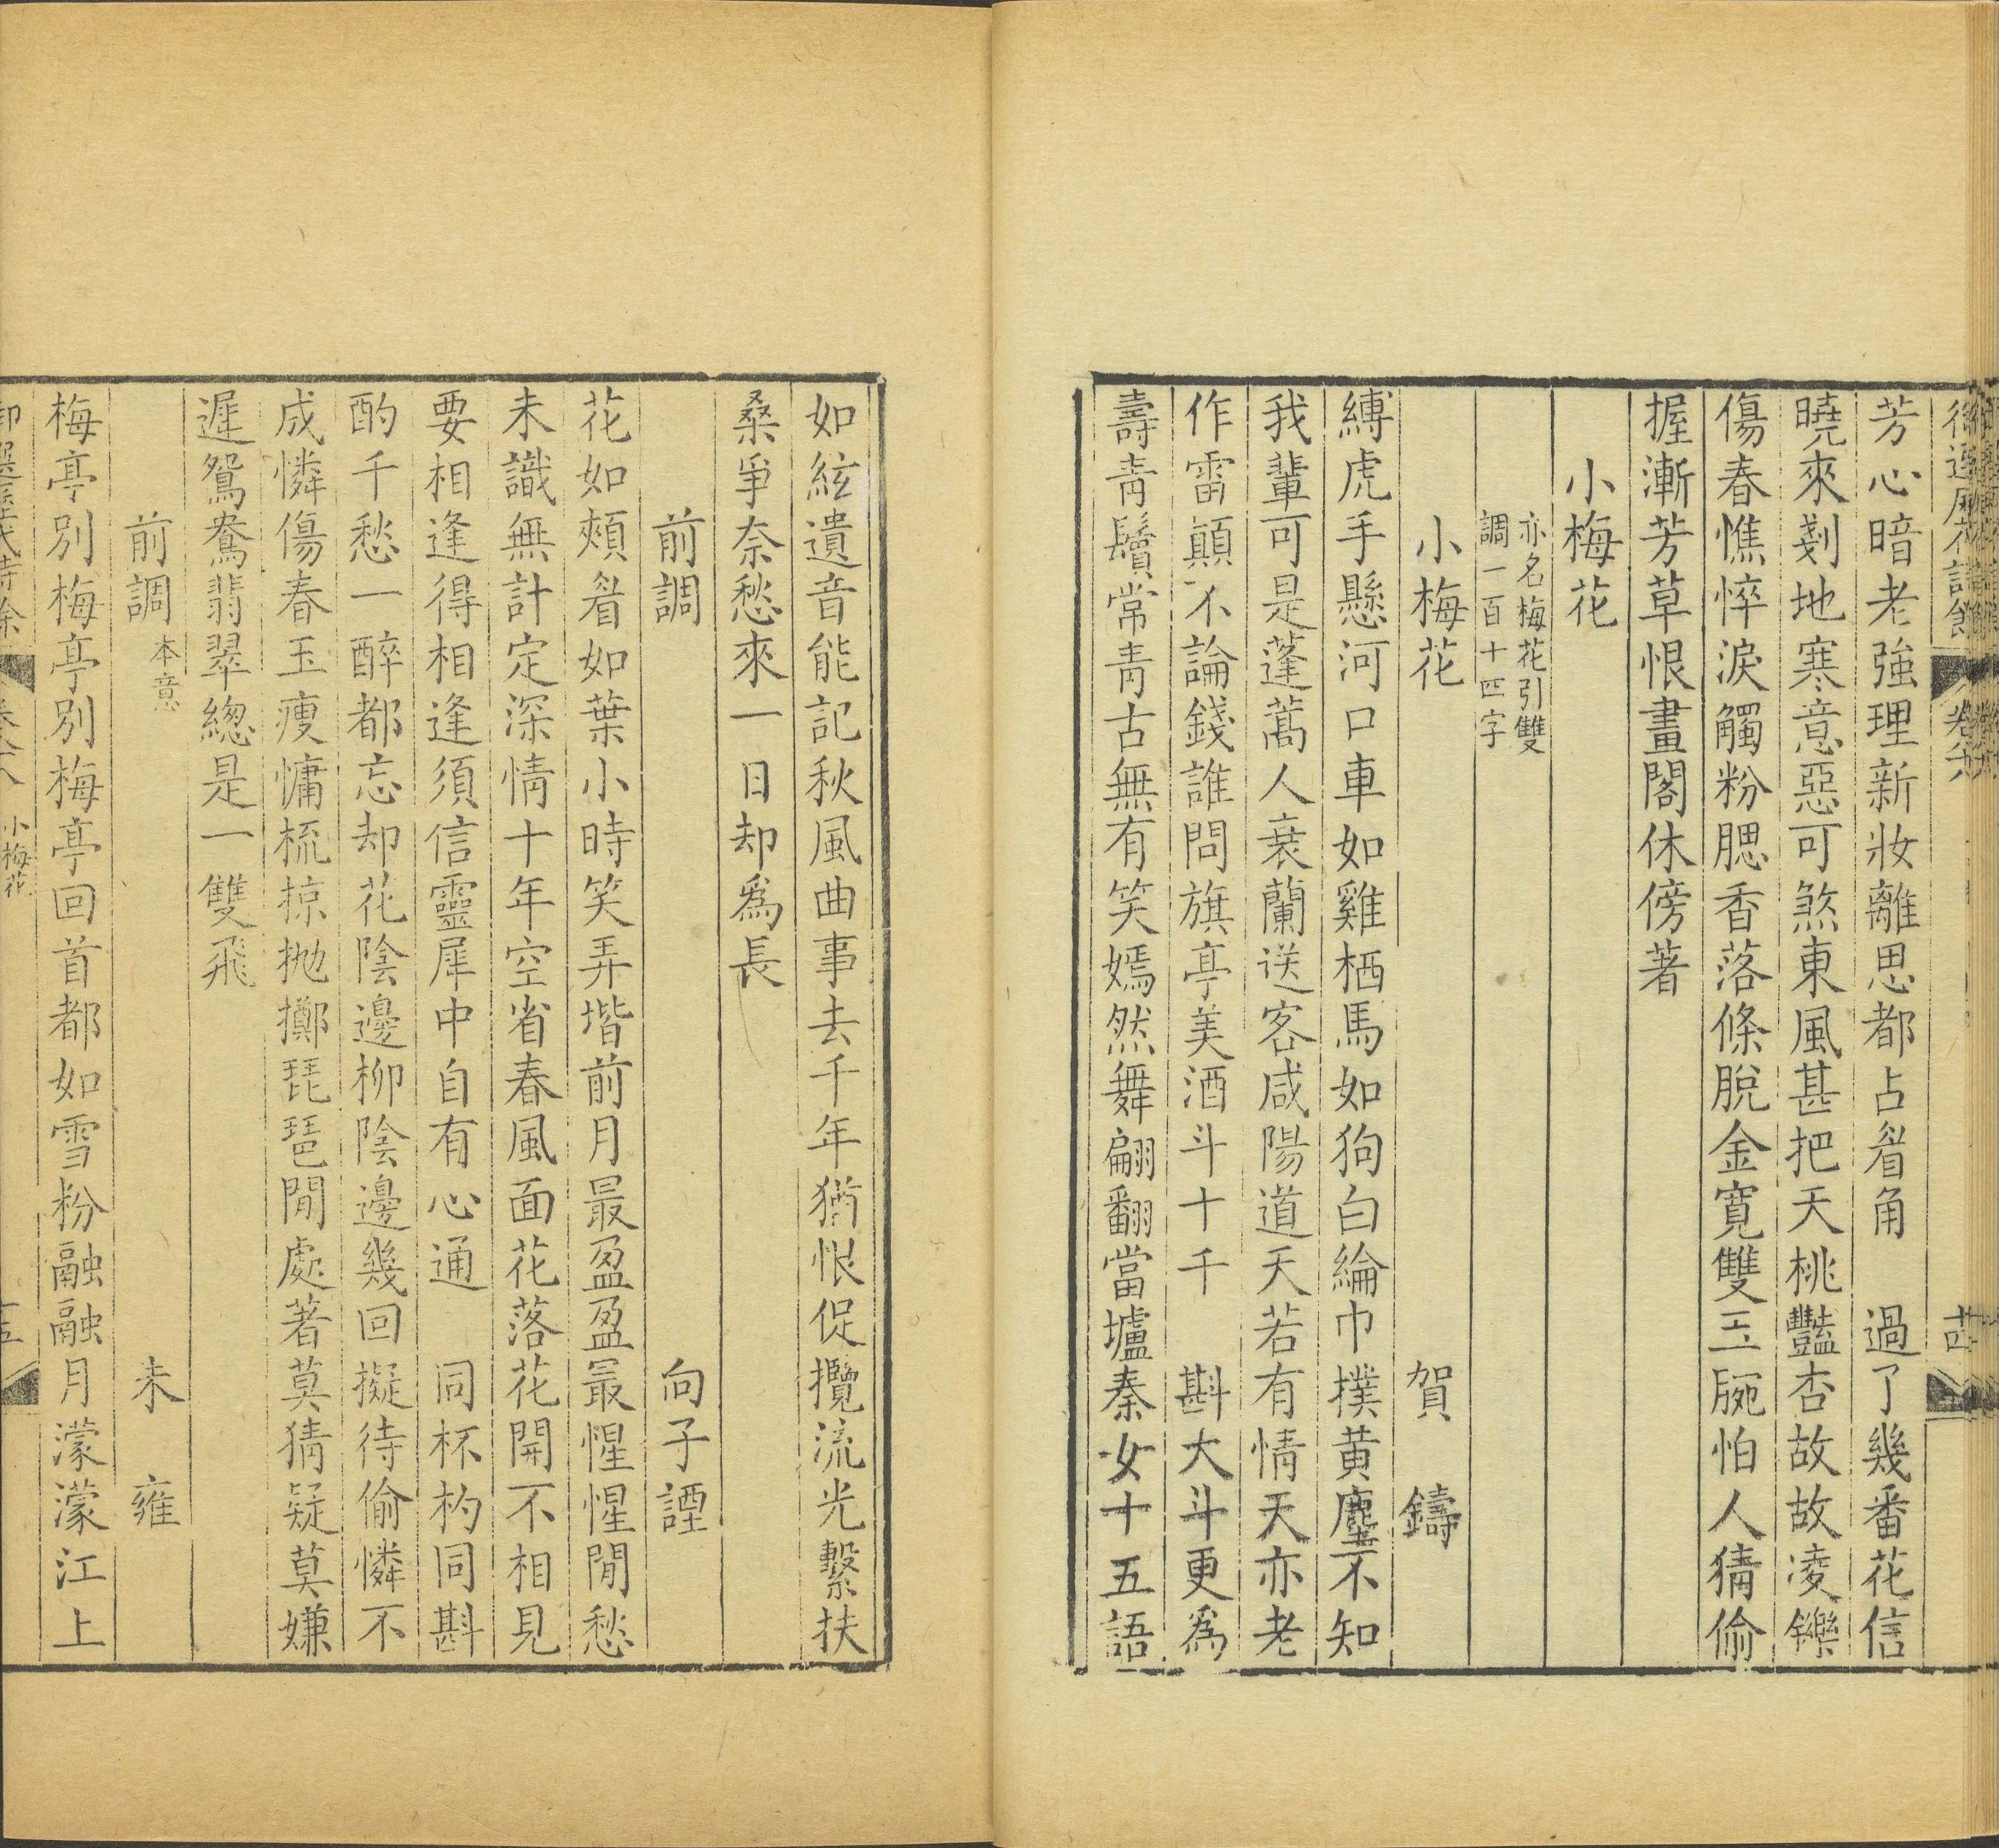 芳心暗老強理新妝離思都占眉角　過了幾番花信
曉來剗地寒意惡可煞東風甚把夭桃豔杏故故凌鑠
傷春憔悴淚觸粉腮香落條脫金寬雙玉腕怕人猜偷
握漸芳草恨畫閣休傍著
小梅花
亦名梅花引雙
調一百十四字
小梅花　賀鑄
縛虎手懸河口車如雞栖馬如狗白綸巾撲黃塵不知
我輩可是蓬蒿人衰蘭送客咸陽道天若有情天亦老
作雷顛不論錢誰問旗亭美酒斗十千　斟大斗更為
壽青鬢常青古無有笑嫣然舞翩翻當壚秦女十五語
如絃遺音能記秋風曲事去千年猶恨促攬流光繫扶
桑爭奈愁來一日却爲長
前調　向子諲
花如頰眉如葉小時笑弄堦前月最盈盈最惺惺閒愁
未識無計定深情十年空省春風面花落花開不相見
要相逢得相逢須信靈犀中自有心通　同杯杓同斟
酌千愁一醉都忘却花陰邊柳陰邊幾回擬待偷憐不
成憐傷春玉瘦慵梳掠抛擲琵琶閒處著莫猜疑莫嫌
遲鴛鴦翡翠緫是一雙飛
前調本意　朱雍
梅亭別梅亭別梅亭回首都如雪粉融融月濛濛江上
小梅花